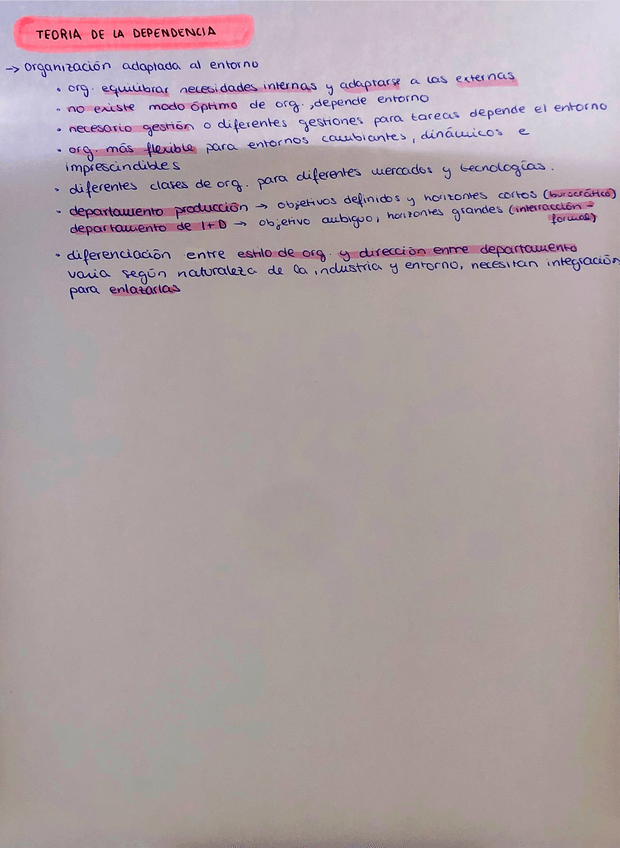 TEORIA DE LA DEPENDENCIA
→ Organización adaptada al entorno
• org. equilibrar necesidades internas y adaptarse a las externas
• no existe modo óptimo de org., depende entorno
• necesario gestión o diferentes gestiones para tareas depende el entorno
• org. más flexible para entornos cambiantes, dinámicos e
imprescindibles
• diferentes clases de org. para diferentes mercados y tecnologías.
• departamento producción → objetivos definidos y horizontes cortos (burocrático)
departamento de I+D → objetivo ambiguo, horizontes grandes (interacción -
formal)
• diferenciación entre estilo de org. y dirección entre departamento
varia según naturaleza de la industria y entorno, necesitan integración
para enlazarlas